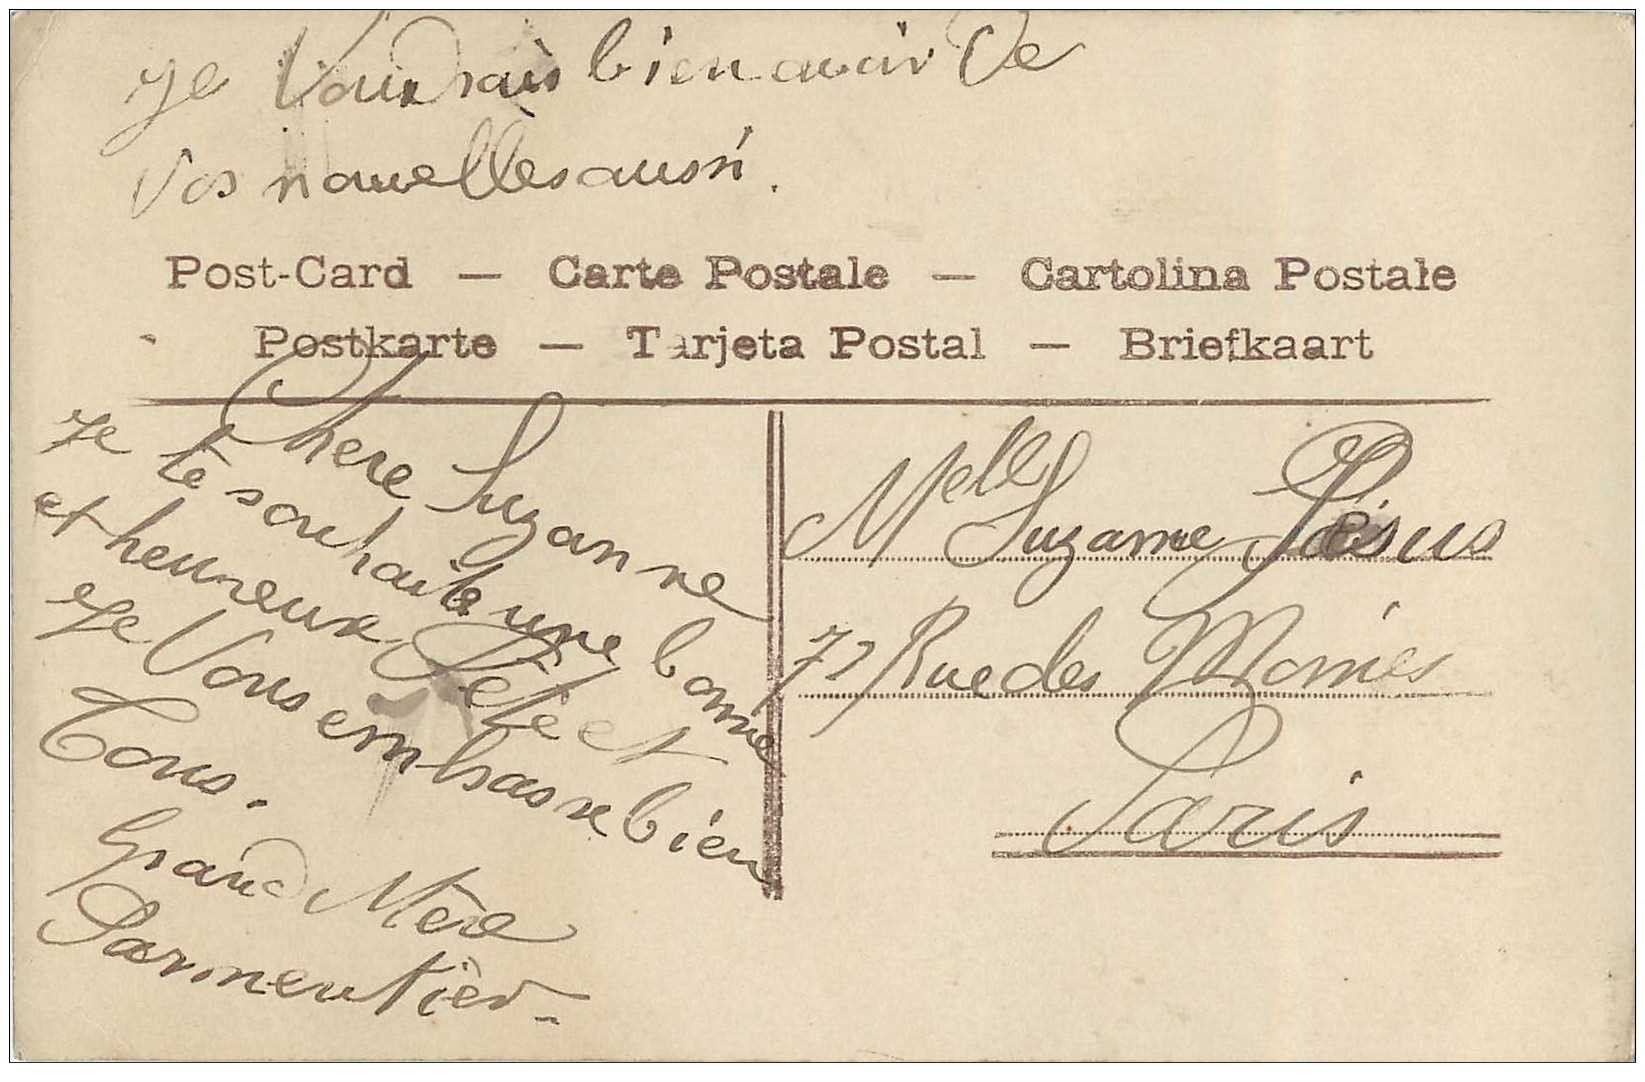 Je Voudrais bien avoir De
Vos nouvelles aussi.
Post-Card — Carte Postale — Cartolina Postale
Postkarte — Tarjeta Postal — Briefkaart
Chere Suzanne
Je te souhaite une bonne
et heureuse Fête et
Je Vous embrasse bien
Tous.
Grand Mère
Parmentier
Melle Suzanne
Rue des Moines
Paris